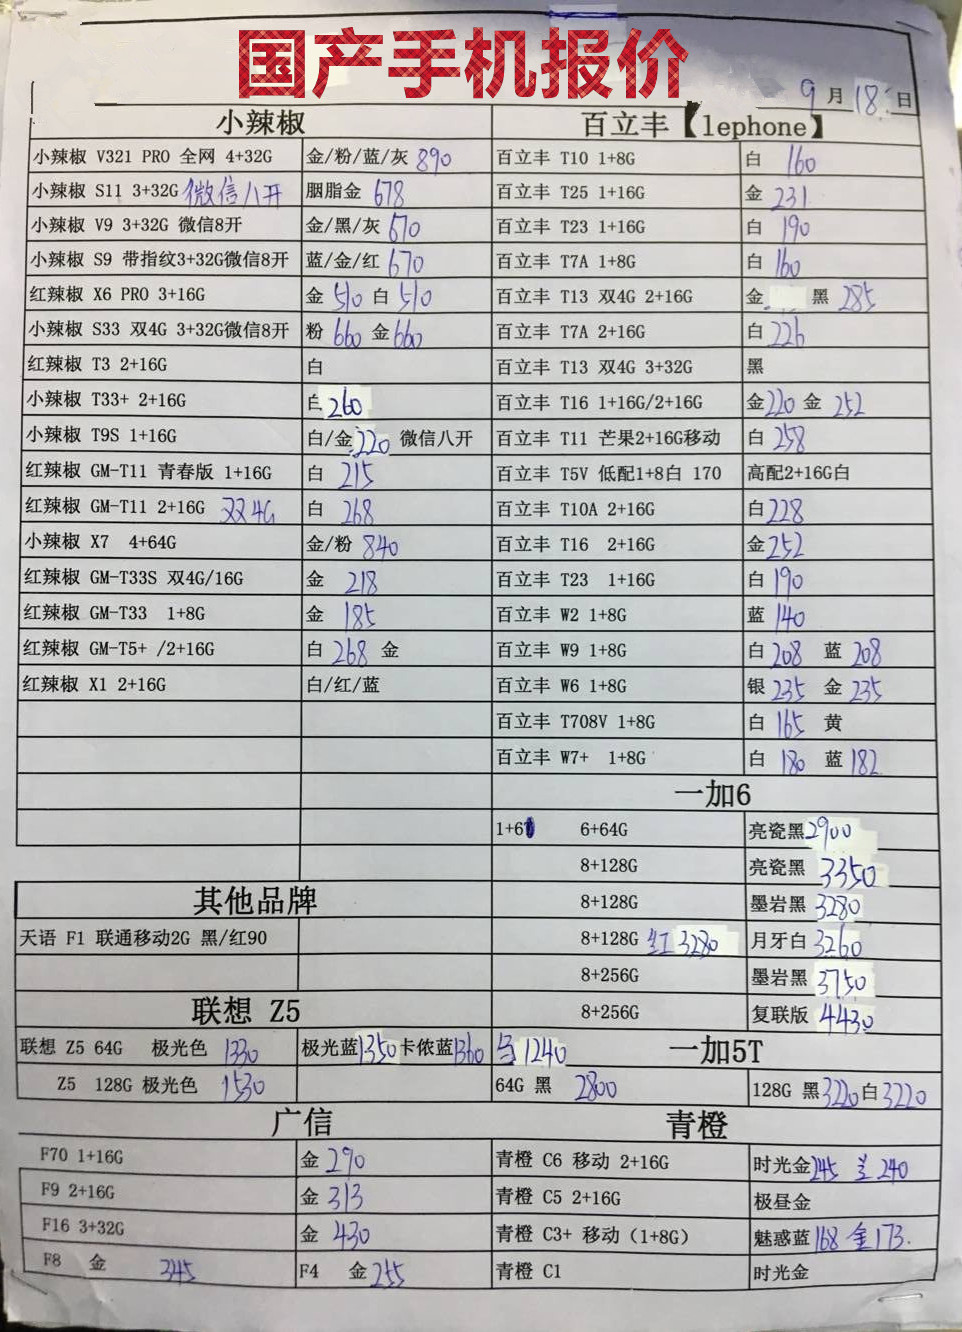 国产手机报价
9月18日
小辣椒
百立丰【lephone】
小辣椒 V321 PRO 全网 4+32G 金/粉/蓝/灰 890 百立丰 T10 1+8G 白 160
小辣椒 S11 3+32G 微信八开 胭脂金 678 百立丰 T25 1+16G 金 231
小辣椒 V9 3+32G 微信8开 金/黑/灰 670 百立丰 T23 1+16G 白 190
小辣椒 S9 带指纹3+32G微信8开 蓝/金/红 670 百立丰 T7A 1+8G 白 160
红辣椒 X6 PRO 3+16G 金 510 白 510 百立丰 T13 双4G 2+16G 金 黑 285
小辣椒 S33 双4G 3+32G微信8开 粉 660 金 660 百立丰 T7A 2+16G 白 226
红辣椒 T3 2+16G 白 百立丰 T13 双4G 3+32G 黑
小辣椒 T33+ 2+16G 白 260 百立丰 T16 1+16G/2+16G 金 220 金 252
小辣椒 T9S 1+16G 白/金 220 微信八开 百立丰 T11 芒果2+16G移动 白 258
红辣椒 GM-T11 青春版 1+16G 白 215 百立丰 T5V 低配1+8白 170 高配2+16G白
红辣椒 GM-T11 2+16G 双4G 白 268 百立丰 T10A 2+16G 白 228
小辣椒 X7 4+64G 金/粉 840 百立丰 T16 2+16G 金 252
红辣椒 GM-T33S 双4G/16G 金 218 百立丰 T23 1+16G 白 190
红辣椒 GM-T33 1+8G 金 185 百立丰 W2 1+8G 蓝 140
红辣椒 GM-T5+ /2+16G 白 268 金 百立丰 W9 1+8G 白 208 蓝 208
红辣椒 X1 2+16G 白/红/蓝 百立丰 W6 1+8G 银 235 金 235
百立丰 T708V 1+8G 白 165 黄
百立丰 W7+ 1+8G 白 180 蓝 182
一加6
1+6 6+64G 亮瓷黑 2900
8+128G 亮瓷黑 3350
其他品牌
8+128G 墨岩黑 3280
天语 F1 联通移动2G 黑/红90 8+128G 红 3280 月牙白 3260
8+256G 墨岩黑 3750
联想 Z5
8+256G 复联版 4430
联想 Z5 64G 极光色 1330 极光蓝 1350 卡侬蓝 1360 1240
一加5T
Z5 128G 极光色 1530 64G 黑 2800 128G 黑 3220 白 3220
广信
青橙
F70 1+16G 金 290 青橙 C6 移动 2+16G 时光金 245 240
F9 2+16G 金 313 青橙 C5 2+16G 极昼金
F16 3+32G 金 430 青橙 C3+ 移动（1+8G） 魅惑蓝 168 金 173.
F8 金 345 F4 金 255 青橙 C1 时光金